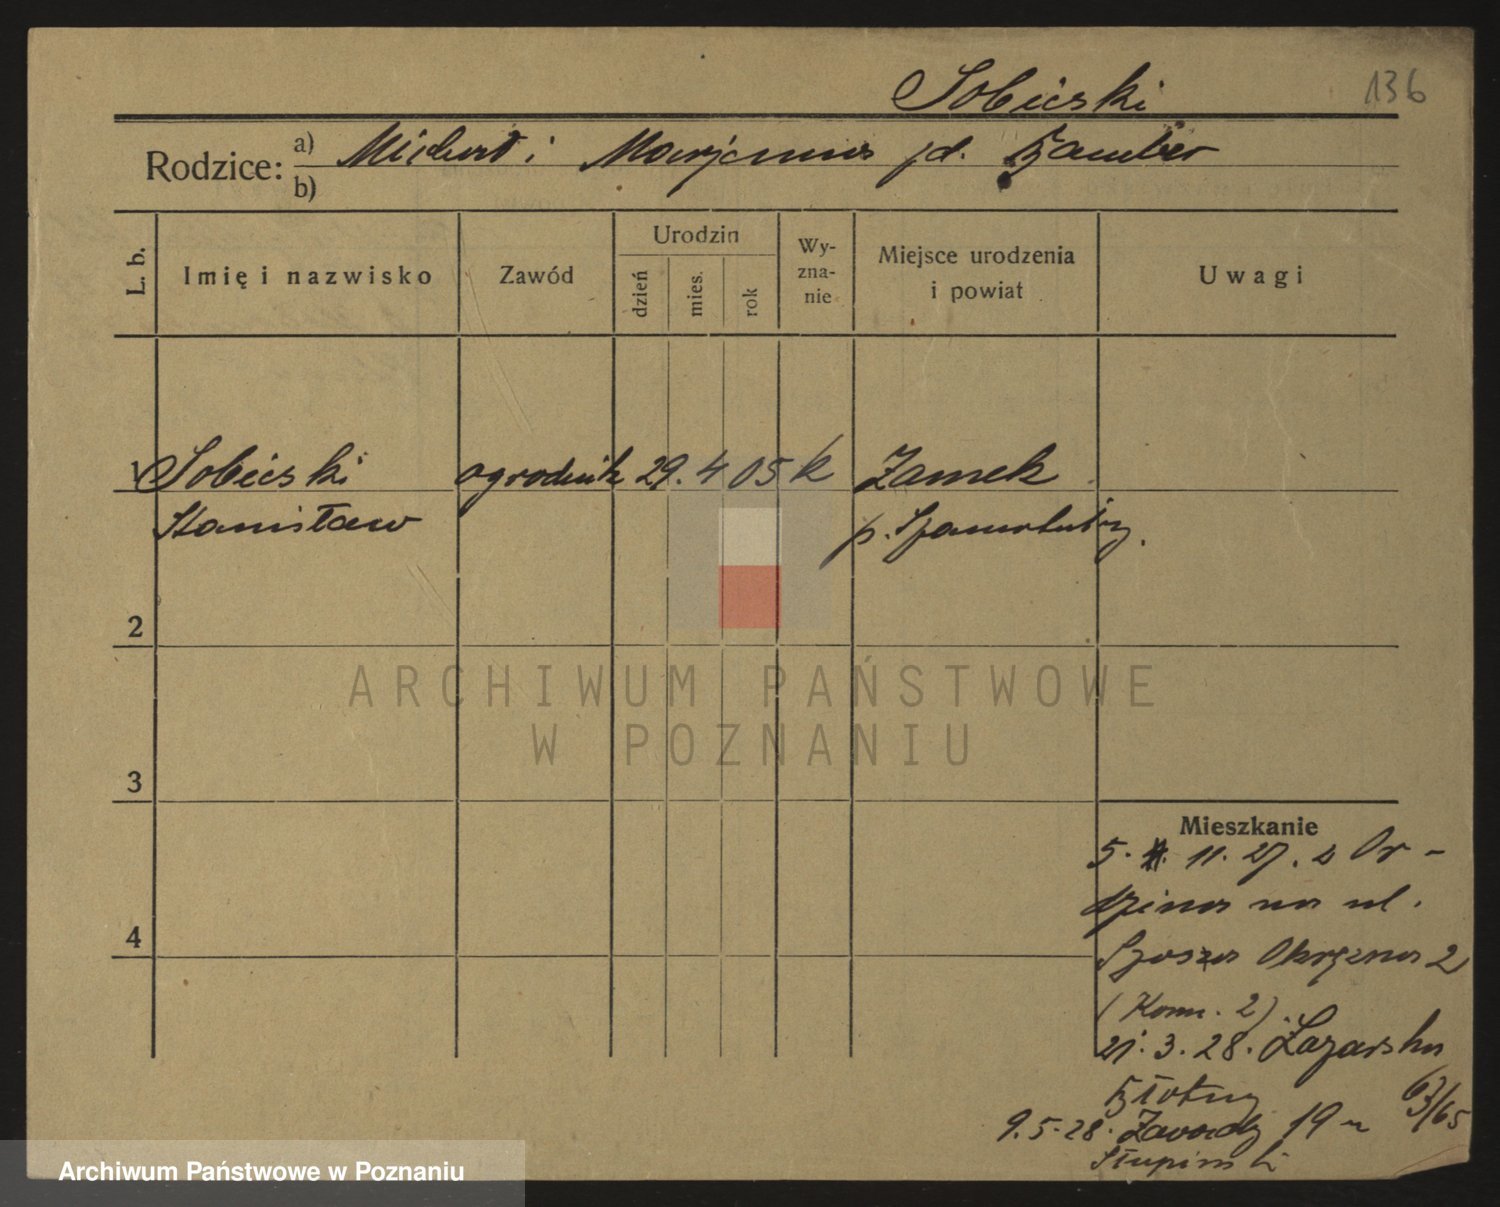 Sobieski 136
Rodzice: a) Michał i Marjanna zd. Bamber
b)
L. b. Imię i nazwisko Zawód Urodzin dzień mies. rok Wy-zna-nie Miejsce urodzenia i powiat Uwagi
1 Sobieski ogrodnik 29. 4 05 k Zamek
Stanisław p. Szamotuły.
2
ARCHIWUM PAŃSTWOWE
W POZNANIU
3
Mieszkanie
5. 11. 27. z Or-
dzina na ul.
4
Szosa Okrężna 2
(Kom. 2).
21. 3. 28. Łazarska
63/65
9. 5. 28. Zawady 19 u
Słupinski
Archiwum Państwowe w Poznaniu